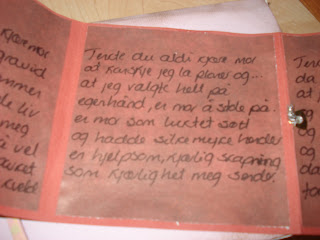 kjær mor
gravid
ammer
de liv
meg
vel
Tenkte du aldri kjære mor
at kanskje jeg la planer og...
at jeg valgte helt på
egenhånd, er mor å stole på
er mor som luktet søtt
og hadde silke myke hender
en hjelpsom, kjærlig skapning
som kjærlighet meg sender.
Ten
da
at f
je
eg
og
da